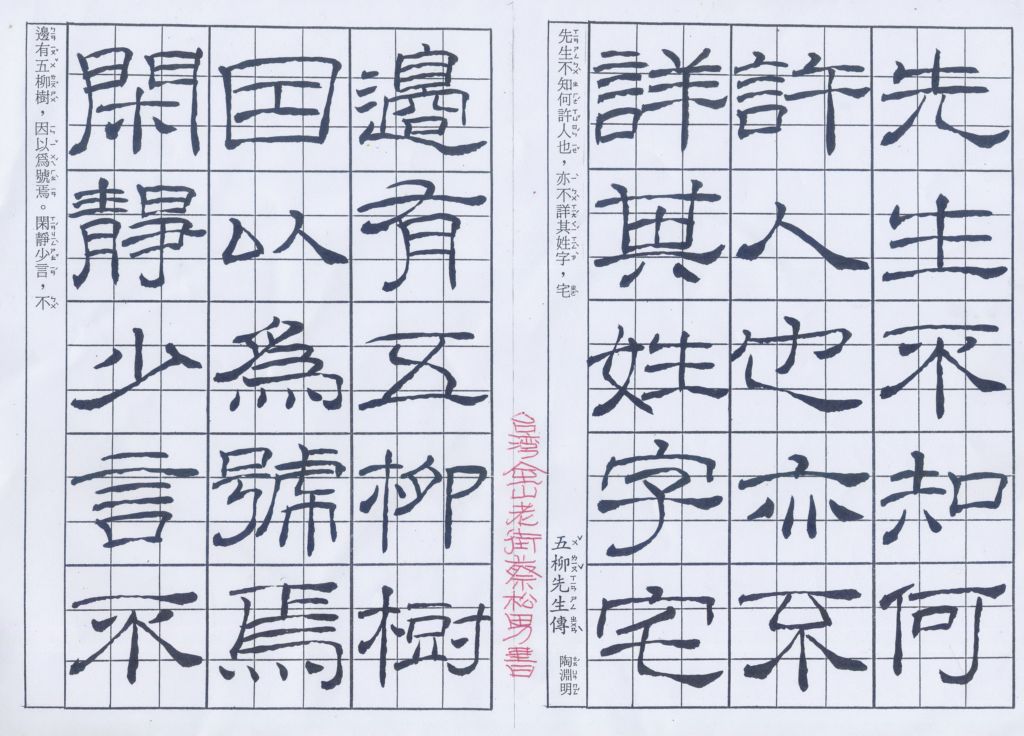 先生不知何
許人也亦不
詳其姓字宅
先生不知何許人也，亦不詳其姓字，宅
五柳先生傳
陶淵明
台灣金山老街蔡松男書
邊有五柳樹
因以為號焉
閑靜少言不
邊有五柳樹，因以爲號焉。閑靜少言，不